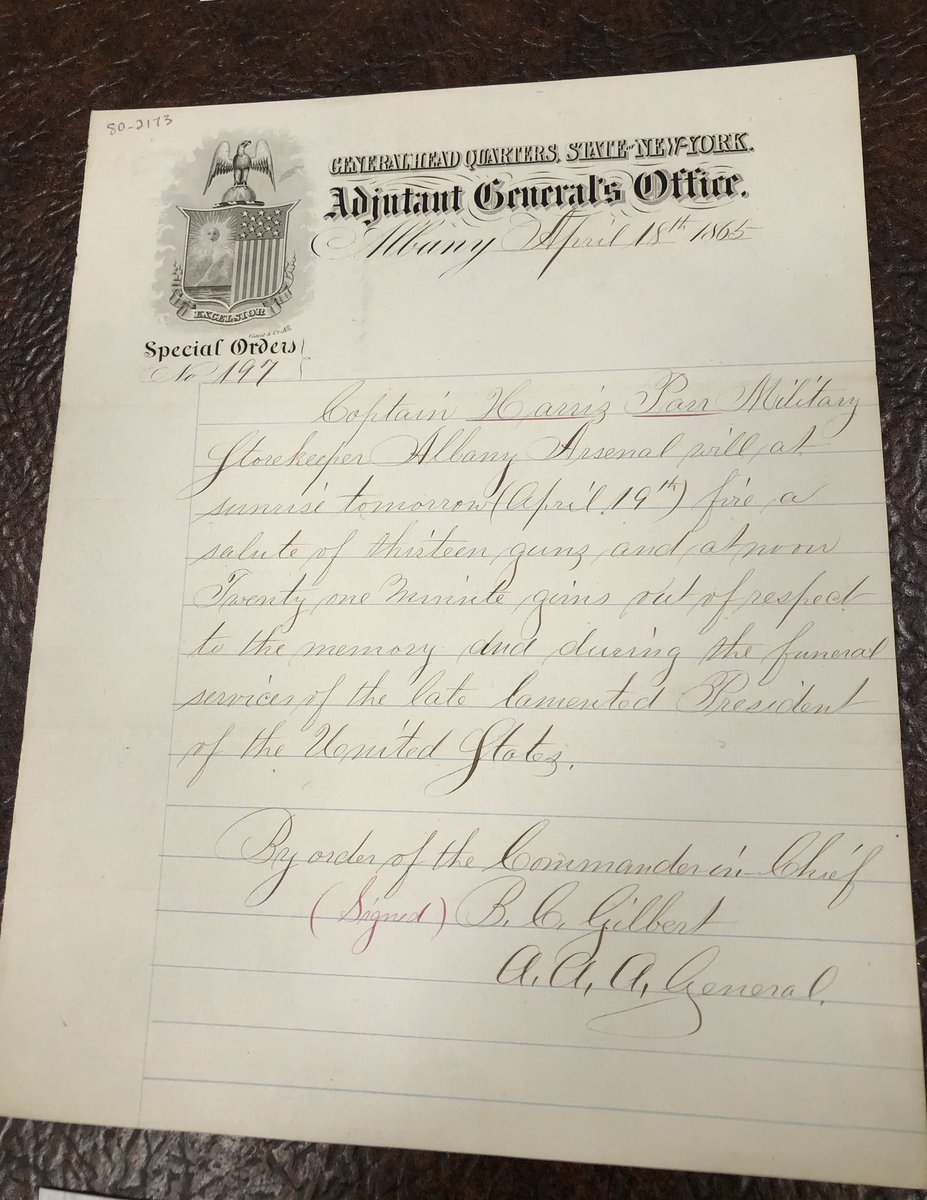 80-2173
GENERAL HEAD QUARTERS, STATE OF NEW-YORK.
Adjutant General's Office.
Albany April 18th 1865
EXCELSIOR
Special Orders
No 197
Captain Harris Parr Military
Storekeeper Albany Arsenal will at
sunrise tomorrow (April 19th) fire a
salute of thirteen guns and at noon
Twenty one minute guns out of respect
to the memory and during the funeral
services of the late lamented President
of the United States.
By order of the Commander in Chief
(Signed) B. C. Gilbert
A. A. A. General.